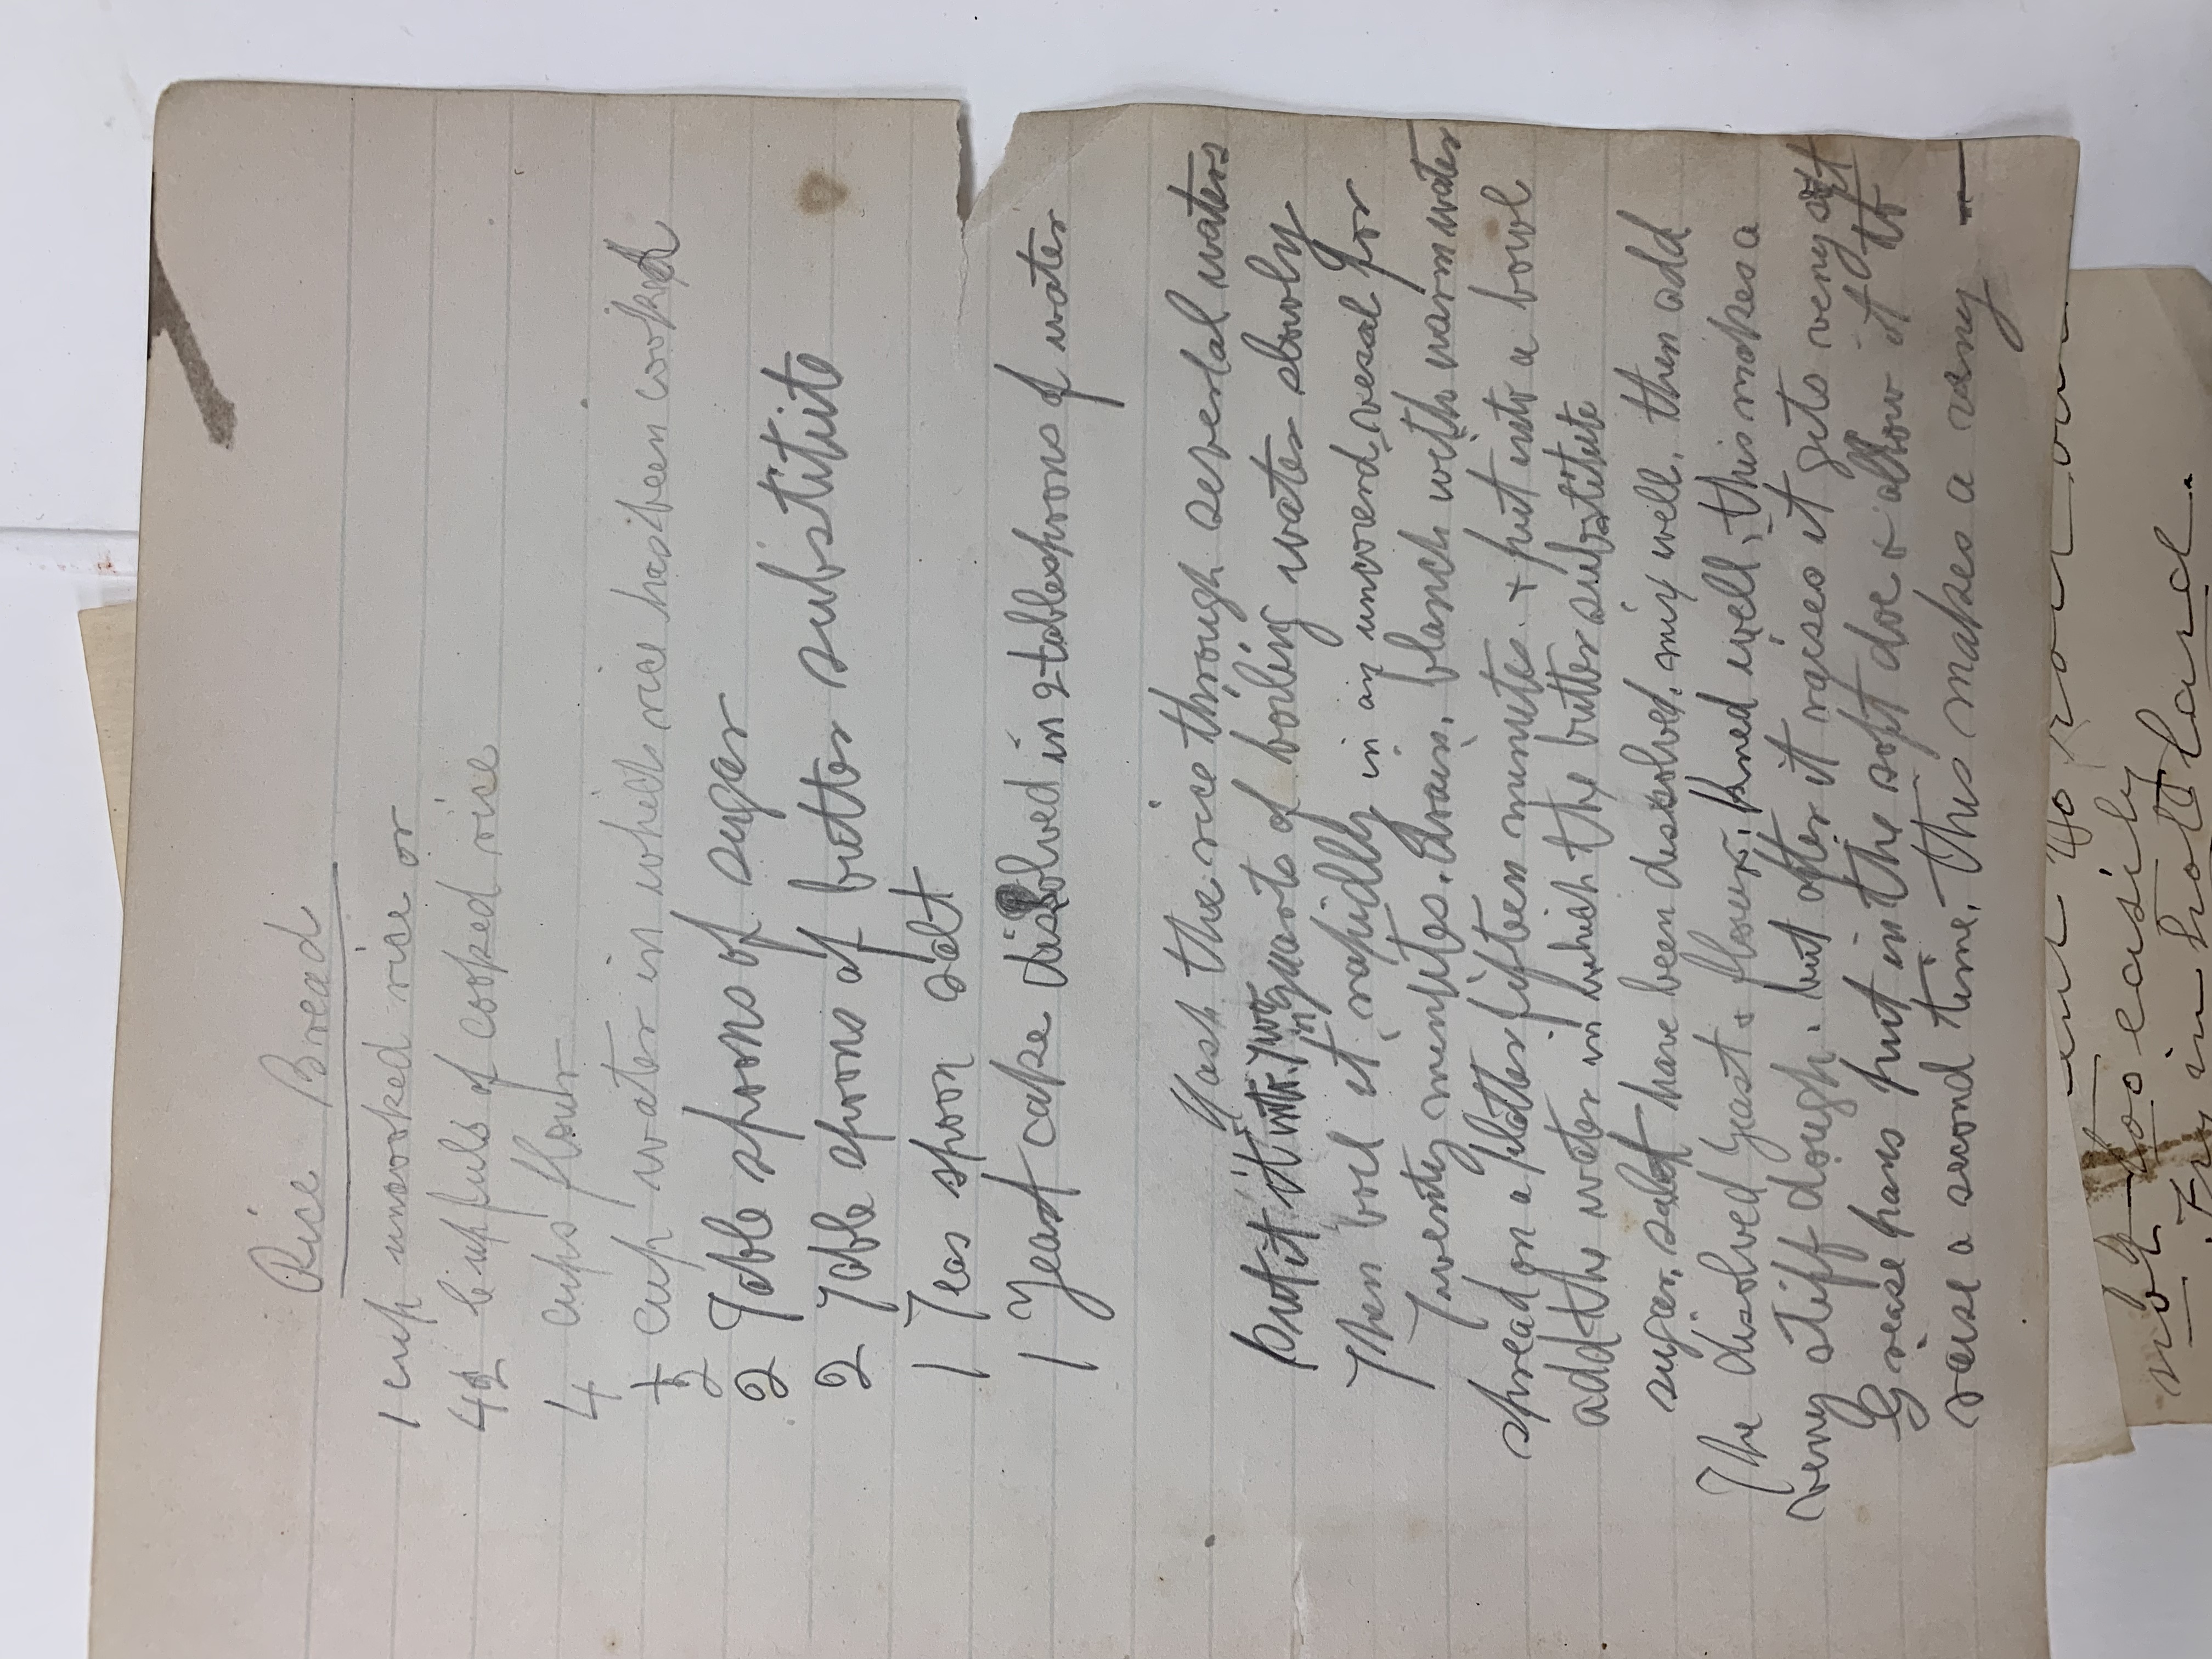 Rice Bread
1 cup uncooked rice or
4½ Cupfuls of cooked rice
4 cups flour
½ cup water in which rice has been cooked
2 Table spoons of sugar
2 Table spoons of butter substitute
1 Teas spoon salt
1 Yeast cake dissolved in 2 tablespoons of water
Wash the rice through severlal waters
put it it into Two quarts of boiling water slowly
Then boil it in rapidly in an uncoverd vessal for
Twenty minutes. drain. blanch with warm water
spread on a platter fifteen minutes. + put into a bowl
add the water in which the butter substitute
sugar, salt have been dissolved. mix well. then add
The disolved yeast & flour. Kned well, this makes a
very stiff dough. but after it raises it gets very soft
Grease pans put in the soft doe & allow it to
raise a second time. this makes a very —
to roll out
not too easily
Fry in hot lard.